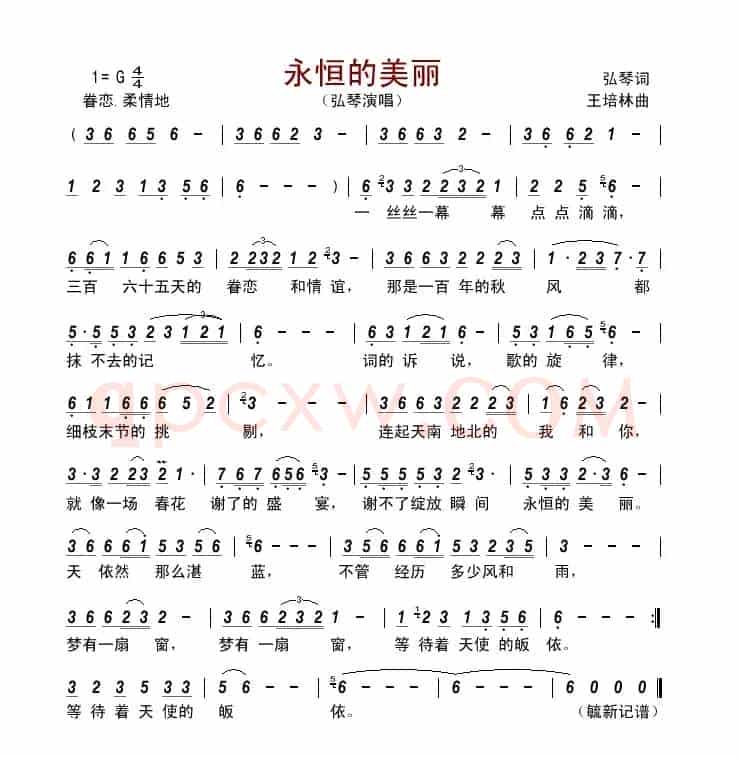 永恒的美丽
1= G 4/4
弘琴词
眷恋.柔情地
（弘琴演唱）
王培林曲
( 3 6 6 5 6 - | 3 6 6 2 3 - | 3 6 6 3 2 - - | 3 6 6 2 1 -
1 2 3 1 3 5 6 | 6 - - - ) | 6 3 3 2 2 3 2 1 | 2 2 5 6 - -
一 丝丝一幕 幕 点点滴滴，
6 6 1 1 6 6 5 3 | 2 2 3 2 1 2 3 - | 3 6 6 3 2 2 2 5 | 1 · 2 3 7 · 7
三百 六十五天的 眷恋 和情谊， 那是一百年的秋 风 都
5 · 5 5 3 2 3 1 2 1 | 6 - - - | 6 3 1 2 1 - | 5 3 1 6 5 6 -
抹 不去的记 忆。 词的诉 说， 歌的旋 律，
qpcxw.com
6 1 1 6 6 6 5 2 | 3 - - - | 3 6 6 3 2 2 2 3 | 1 6 2 3 2 -
细枝末节的挑 剔， 连起天南地北的 我 和 你，
3 · 3 2 2 3 2 1 · | 7 6 7 6 5 6 3 - | 5 5 5 5 5 3 2 3 · | 5 5 3 2 · 3 6
就 像一场 春花 谢了的 盛 宴， 谢不了绽放 瞬 间 永恒的 美 丽。
3 6 6 6 1 5 3 5 6 | 6 - - - | 3 5 6 6 1 5 3 2 3 5 | 3 - - -
天 依然 那么湛 蓝， 不管 经历 多少风和 雨，
3 6 6 2 3 2 1 - | 3 6 6 2 3 2 1 - | 1 2 3 1 3 5 6 | 6 - - - :‖
梦有一扇 窗， 梦有一扇 窗， 等待着天使的皈 依。
3 2 3 5 3 2 | 5 6 - - | 6 - - - | 6 - - - | 6 0 0 0 ‖
等待着天使的 皈 依。
（毓新记谱）